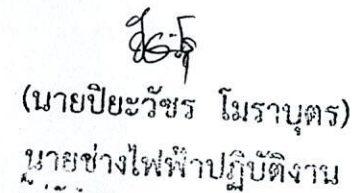 (นายปิยะวัชร โมราบุตร)
นายช่างไฟฟ้าปฏิบัติงาน